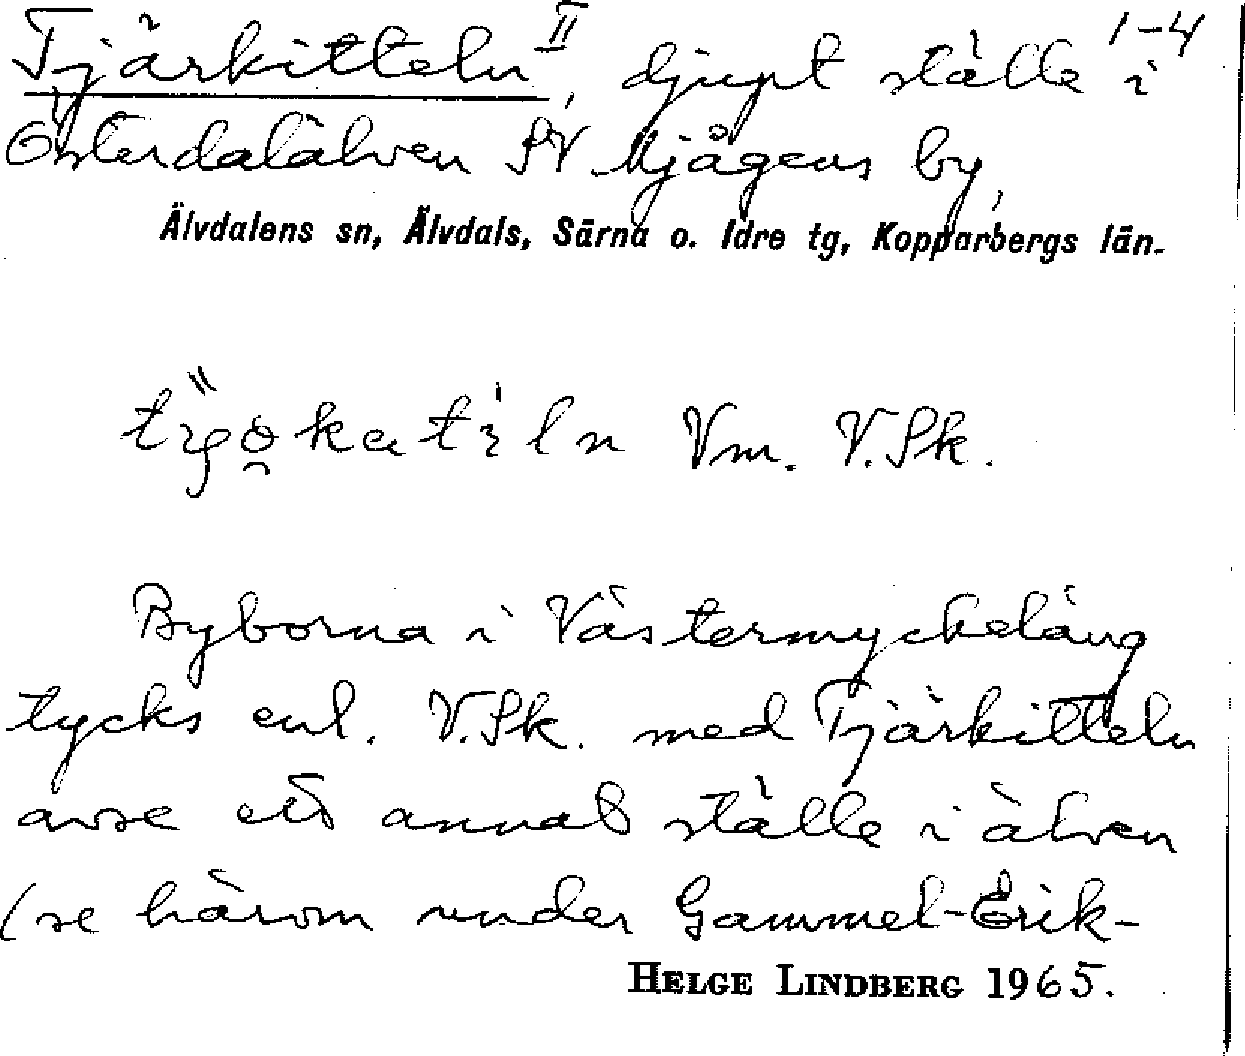 Tjärkitteln II, djupt ställe i 1-4
Österdalälven SV Mjågens by,
Älvdalens sn, Älvdals, Särna o. Idre tg, Kopparbergs län.
Vm. V.Sk.
Byborna i Västermyckeläng
tycks enl. V.Sk. med Tjärkitteln
avse ett annat ställe i älven
(se härom under Gammel-Erik-
HELGE LINDBERG 1965.